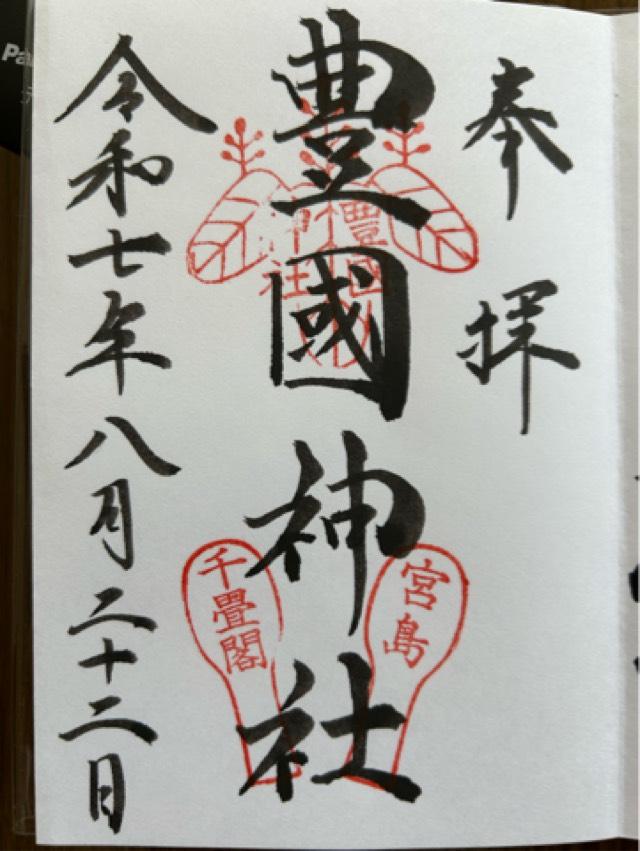 奉拝
豊國神社
豊國
神社
宮島
千畳閣
令和七年八月二十二日
Pa